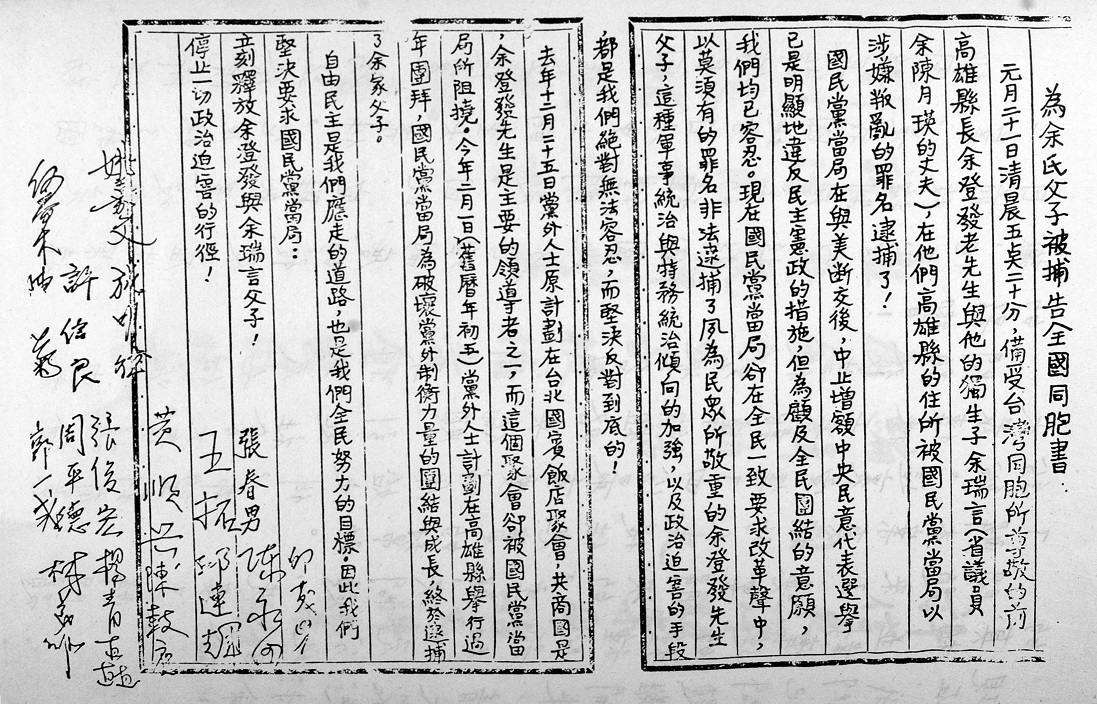 為余氏父子被捕告全國同胞書
元月二十一日清晨五点二十分，備受台灣同胞所尊敬的前
高雄縣長余登發老先生與他的獨生子余瑞言（省議員
余陳月瑛的丈夫），在他們高雄縣的住所被國民黨當局以
涉嫌叛亂的罪名逮捕了！
國民黨當局在與美斷交後，中止增額中央民意代表選舉
已是明顯地違反民主憲政的措施，但為顧及全民團結的意願，
我們均已容忍。現在國民黨當局卻在全民一致要求改革聲中，
以莫須有的罪名非法逮捕了夙為民眾所敬重的余登發先生
父子，這種軍事統治與特務統治傾向的加強，以及政治迫害的手段
都是我們絕對無法容忍，而堅決反對到底的！
去年十二月二十五日黨外人士原計劃在台北國賓飯店聚會，共商國是
，余登發先生是主要的領導者之一，而這個聚會卻被國民黨當
局所阻撓。今年二月一日（舊曆年初五）黨外人士計劃在高雄縣舉行過
年團拜，國民黨當局為破壞黨外制衡力量的團結與成長，終於逮捕
了余家父子。
自由民主是我們應走的道路，也是我們全民努力的目標。因此我們
堅決要求國民黨當局：
立刻釋放余登發與余瑞言父子！
停止一切政治迫害的行徑！
張春男 陳永
王拓 邱連輝
黃順興 陳鼓應
姚嘉文 張俊宏 楊青矗
許信良 周平德 林義雄
何春木 郭一成